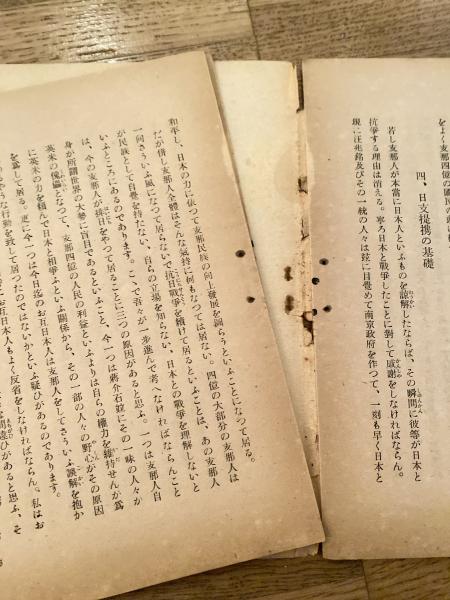 をよく支那四億の國民の
四、日支提携の基礎
若し支那人が本當に日本人といふものを諒解したならば、その瞬間に彼等が日本と
抗爭する理由は消える。寧ろ日本と戰爭したことに對して感謝をしなければならん。
現に汪兆銘及びその一統の人々は玆に目覺めて南京政府を作つて、一刻も早く日本と
和平し、日本の力に依つて支那民族の向上發展を圖らうといふことになつて居る。
だが併し支那人全體はそんな氣持に何もなつては居ない。四億の大部分の支那人は
一向さういふ風になつて居らないで抗日戰爭を續けて居るといふことは、あの支那人
が民族として自覺を持たない、自らの立場を知らない、日本との戰爭を理解しないと
いふところにあるのであります。こゝで吾々が一步進んで考へなければならんこと
は、今の支那が抗日をやつて居ることに三つの原因があると思ふ。一つは支那人自
身が所謂世界の大勢に盲目であるといふこと、今一つは蔣介石竝にその一味の人々が
英米の傀儡となつて、支那四億の人民の利益といふよりは自らの權力を維持せんが爲
に英米の力を賴んで日本と相爭ふといふ關係から、その一部の人々の野心がその原因
を爲して居る。更に今一つは今日迄のお互日本人は支那人をしてさういふ誤解を抱か
るやうな行動を致して居つたのではないかといふ疑ひがあるのであります。
お互日本人もよく反省をしなければならん。私はお
間違ひがあると思ふ、そ